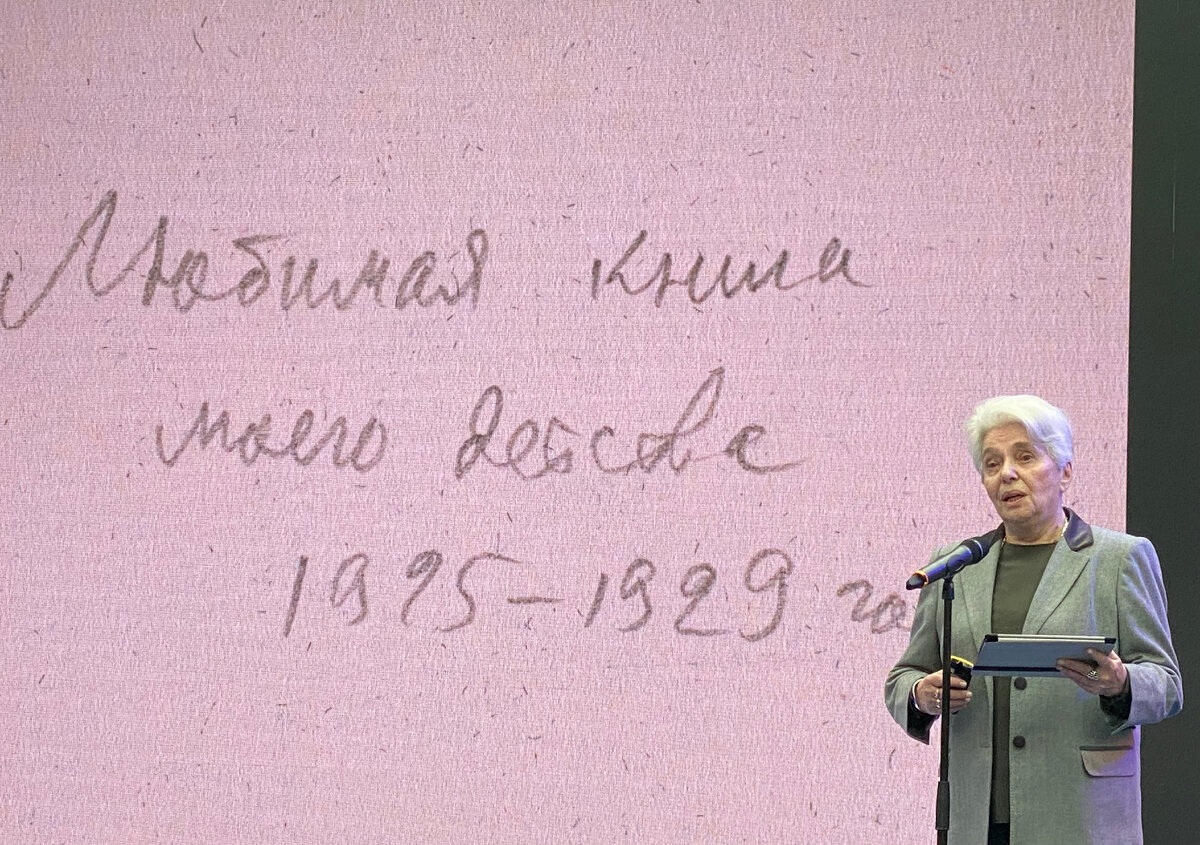 Любимая книга
моего детства
1925-1929 го